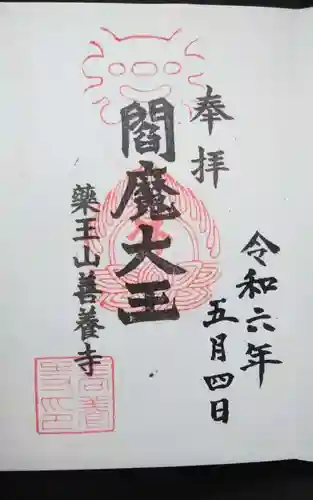 奉拝
令和六年
五月四日
閻魔大王
薬王山善養寺